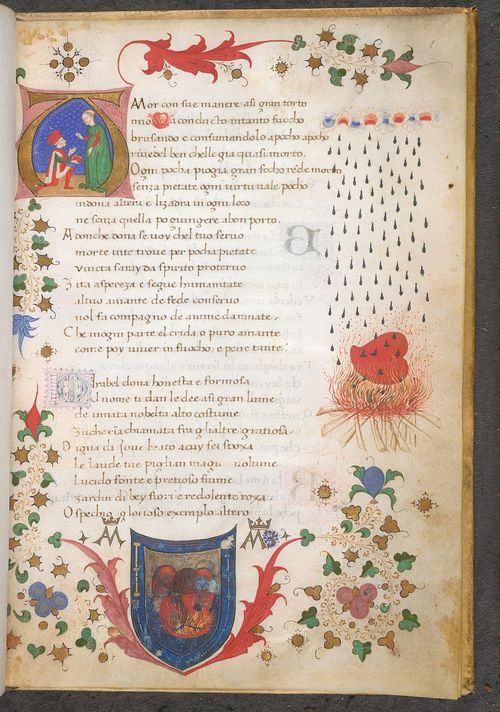 AMor con sue manere asi gran torto
mio a conducto intanto fuocho
brusando e consumandolo apocho apocho
ben chelle gia quasi morto.
Ogni pocha piogia gran focho rede morto
senza pietate ogni virtu vale pocho
indona altera e lizadra in ogni loco
ne senza quella po giungere abon porto.
Adonche dona se voy chel tuo servo
morte inte trove per pocha pietate
vincta saray da spirito protervo
Zita aspreza e segue humanitate
altuo amante de fede conservo
nol fa compagno de anime damnate.
Che mogni parte el cruda o puro amante
come poy viver in fuocho, e pene tante.
Mirabel dova honesta e formosa
al nome ti dan le dee asi gran lume
de innata nobelta alto costume
Zuchera chiamata fra gli altre gratiosa.
Digna da Jove
Le laude tue piglian magno volume
Lucido fonte e pretioso fiume
Zardin de bey fiori e redolente roxa
O spechio glorioso exemplo altero